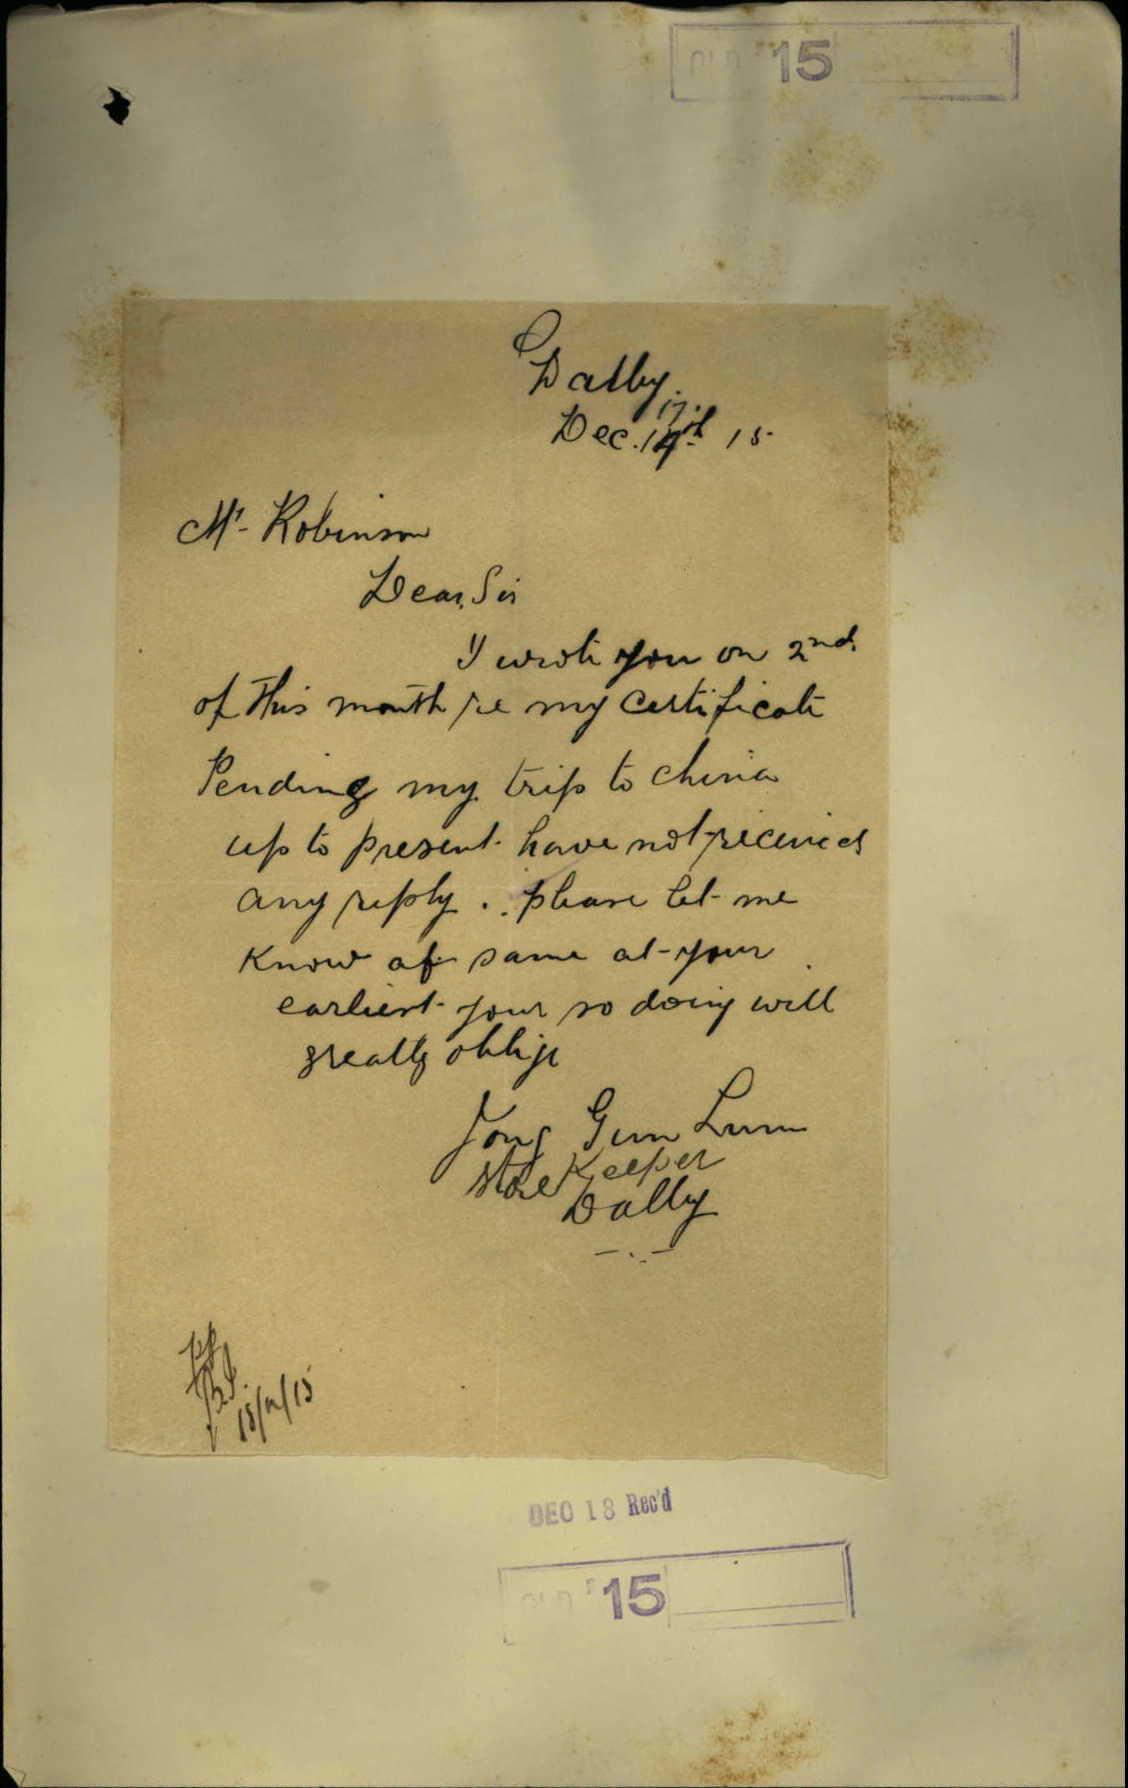 QLD '15
Dalby.
17.
Dec. 14th 15.
Mr. Robinson
Dear Sir
I wrote you on 2nd.
of this month re my certificate
Pending my trip to china
up to present have not received
any reply. please let me
know of same at your
earliest your so doing will
greatly oblige
Jong Gum Lum
storeKeeper
Dalby
18/12/15
DEC 18 Rec'd
QLD '15